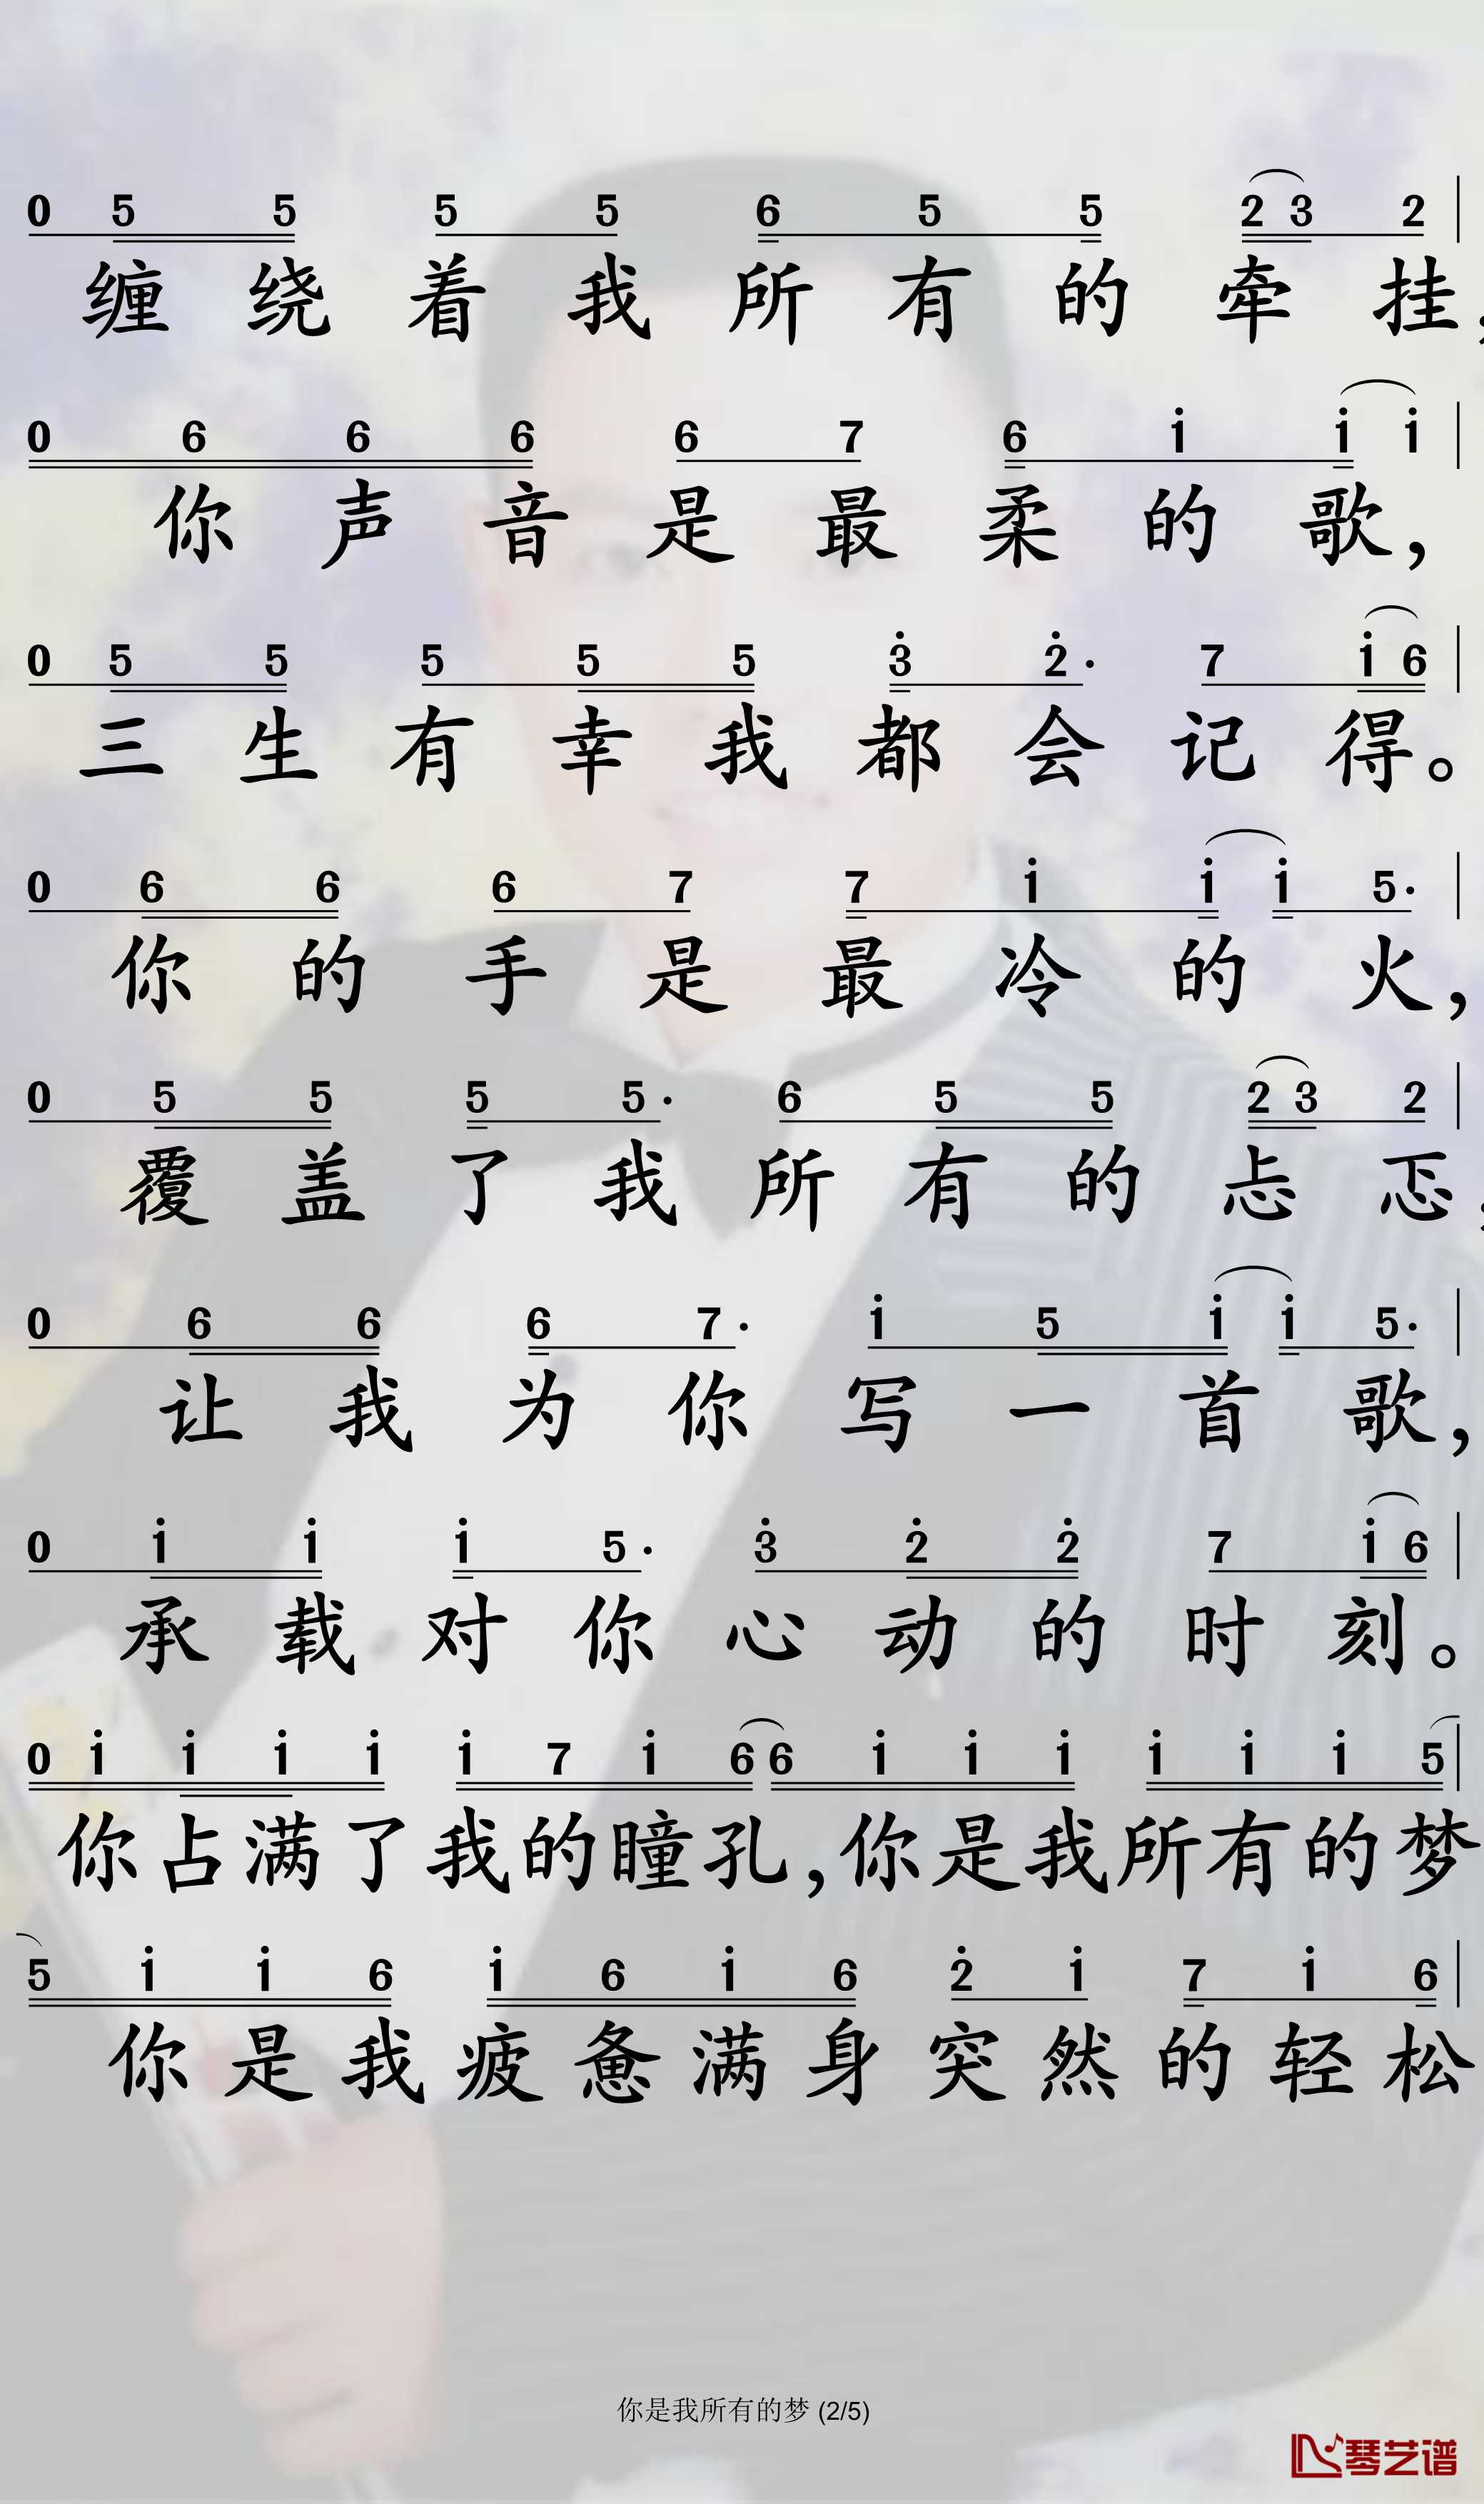 0 5 5 5 5 6 5 5 2 3 2
缠绕着我所有的牵挂,
0 6 6 6 6 7 6 i i i
你声音是最柔的歌,
0 5 5 5 5 5 3̇ 2̇· 7 i 6
三生有幸我都会记得。
0 6 6 6 7 7 i i i 5·
你的手是最冷的火,
0 5 5 5 5· 6 5 5 2 3 2
覆盖了我所有的忐忑,
0 6 6 6 7· i 5 i i 5·
让我为你写一首歌,
0 i i i 5· 3̇ 2̇ 2̇ 7 i 6
承载对你心动的时刻。
0 i i i i i 7 i 6 6 i i i i i i 5
你占满了我的瞳孔,你是我所有的梦
5 i i 6 i 6 i 6 2̇ i 7 i 6
你是我疲惫满身突然的轻松
你是我所有的梦 (2/5)
琴艺谱